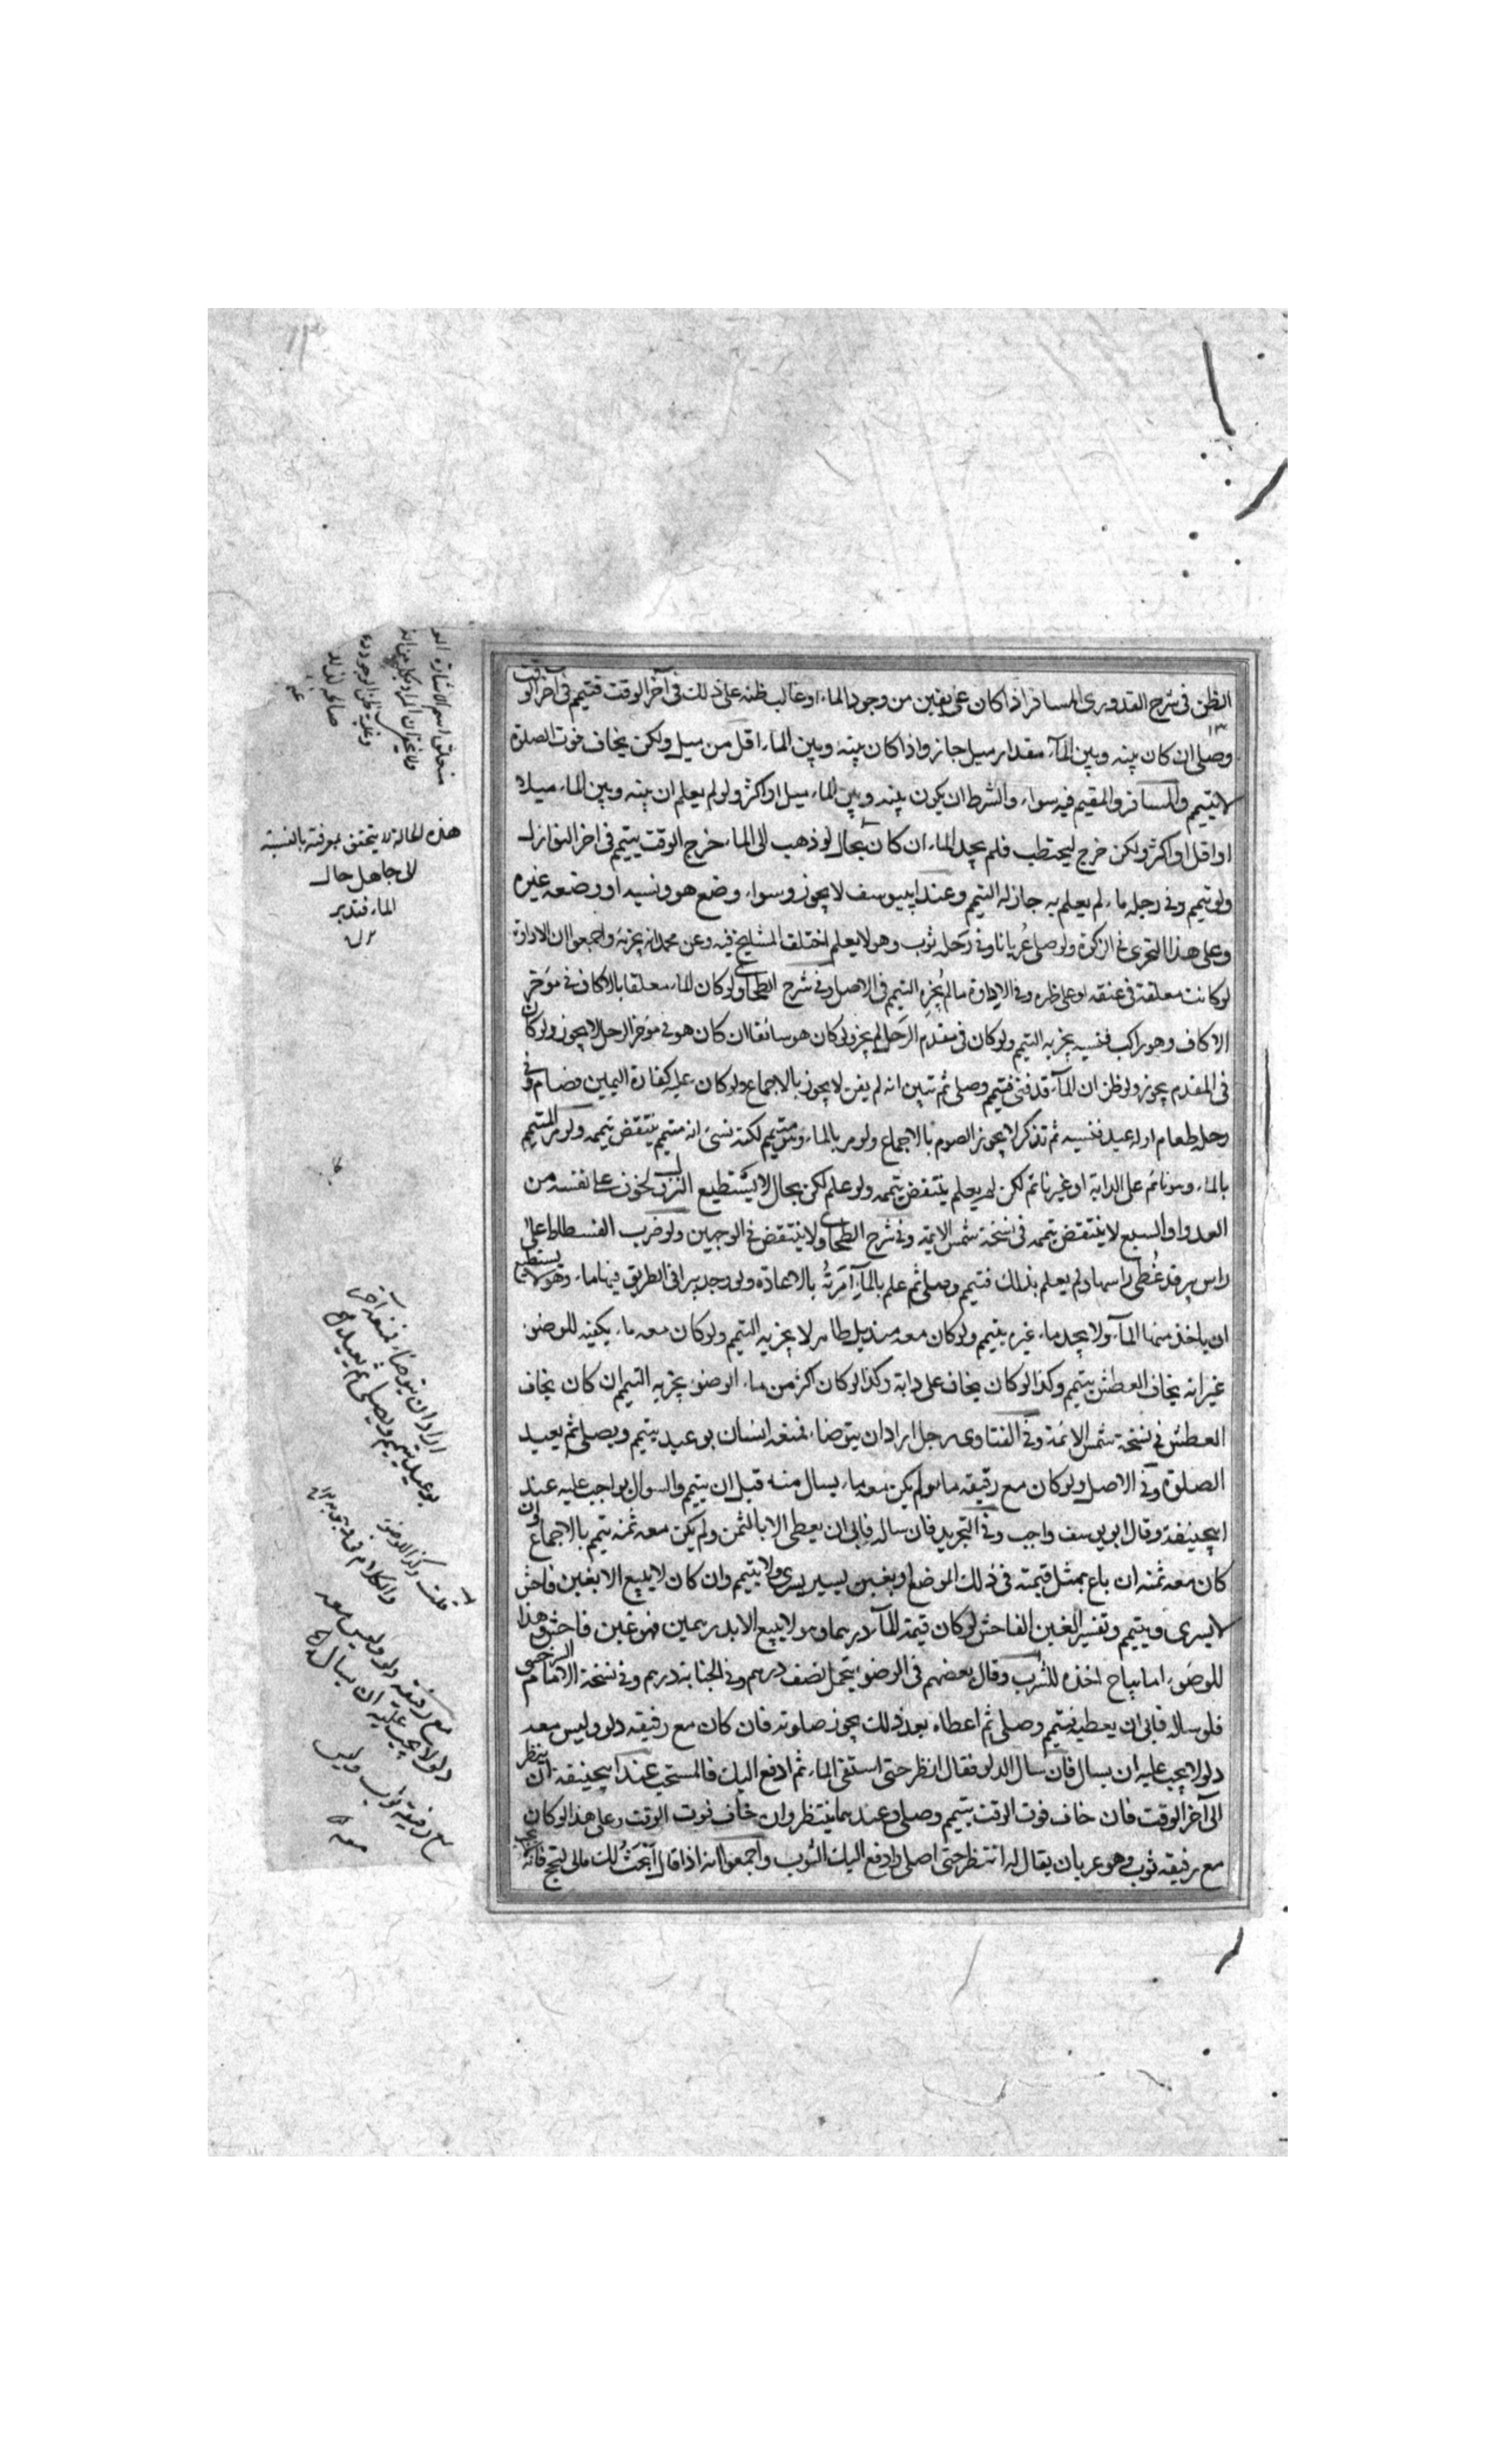 الظن في شرح القدوري المسافر اذا كان على يقين من وجود الماء او غالب ظنه على ذلك في آخر الوقت فتيمم في آخر الوقت
وصلى ان كان بينه وبين الماء مقدار ميل جاز واذا كان بينه وبين الماء اقل من ميل ولكن يخاف فوت الصلوة
لا يتيمم والمسافر والمقيم فيه سواء والشرط ان يكون بينه وبين الماء ميل او اكثر ولو لم يعلم ان بينه وبين الماء ميلا
او اقل او اكثر ولكن خرج ليحتطب فلم يجد الماء ان كان بحال لو ذهب الى الماء خرج الوقت يتيمم في اخر النوازل
ولو تيمم وفي رحله ماء لم يعلم به جاز له التيمم وعند ابييوسف لا يجوز وسواء وضع هو ونسيه او وضعه غيره
وعلى هذا التحرى في الزكوة ولو صلى عريانا وفي رحله ثوب وهو لا يعلم اختلف المشايخ فيه وعن محمد انه يجزئه واجمعوا ان الاداوة
لو كانت معلقة في عنقه او على ظهره وفي الاداوة ماء لم يجزه التيمم في الاصل وفي شرح الطحاوى ولو كان الماء معلقا بالاكاف في مؤخر
الاكاف وهو راكب فنسيه يجزيه التيمم ولو كان في مقدم الرحل لم يجز ولو كان هو سائقا ان كان هو في مؤخر الرحل لا يجوز ولو كان
في المقدم يجوز ولو ظن ان الماء قد فنى فتيمم وصلى ثم تبين انه لم يفن لا يجوز بالاجماع ولو كان عليه كفارة اليمين فصام وفي
رحله طعام او له عبد فنسيه ثم تذكر لا يجوز الصوم بالاجماع ولو مر بالماء وهو متيمم لكنه نسى انه متيمم ينتقض تيممه ولو مر المتيمم
بالماء وهو نائم على الدابة او غير نائم لكن لم يعلم ينتقض تيممه ولو علم لكن بحال لا يستطيع النزول لخوف على نفسه من
العدو او السبع لا ينتقض تيممه في نسخة شمس الايمة وفي شرح الطحاوى ولا ينتقض في الوجهين ولو ضرب الفسطاط على
راس بير قد غطى راسها ولم يعلم بذلك فتيمم وصلى ثم علم بالماء امرته بالاعادة ولو وجد بيرا في الطريق فيها ماء وهو لا يستطيع
ان ياخذ منها الماء ولا يجد ماء غيره يتيمم ولو كان معه منديل طاهر لا يجزيه التيمم ولو كان معه ماء يكفيه للوضوء
غير انه يخاف العطش يتيمم وكذا لو كان يخاف على دابة وكذا لو كان اكثر من ماء الوضوء يجزيه التيمم ان كان يخاف
العطش في نسخة شمس الائمة وفي الفتاوى رجل اراد ان يتوضاء فمنعه انسان بوعيد يتيمم ويصلى ثم يعيد
الصلوة وفي الاصل ولو كان مع رفيقه ماء ولم يكن معه ماء يسال منه قبل ان يتيمم والسوال بواجب عليه عند
ابيحنيفة وقال ابو يوسف واجب وفي التجريد فان ساله فابى ان يعطى الا بالثمن ولم يكن معه ثمنه يتيمم بالاجماع وان
كان معه ثمنه ان باع بمثل قيمته في ذلك الموضع او بغبن يسير يسرى ولا يتيمم وان كان لا يبيع الا بغبن فاحش
لا يسرى ويتيمم وتفسير الغبن الفاحش لو كان قيمة الماء درهما وهو لا يبيع الا بدرهمين فهو غبن فاحش وهذا
للوضوء اما يباح اخذه للشرب وقال بعضهم في الوضوء يتحمل نصف درهم وفي الجنابة درهم وفي نسخة الامام السرخسى
فلو ساله فابى ان يعطيه فتيمم وصلى ثم اعطاه بعد ذلك يجوز صلوته فان كان مع رفيقه دلو وليس معه
دلو لا يجب عليه ان يسال فان سال الدلو فقال انظر حتى استقى الماء ثم ادفع اليك فالمستحب عند ابيحنيفة ان ينتظر
الى آخر الوقت فان خاف فوت الوقت يتيمم وصلى وعندهما ينتظر وان خاف فوت الوقت وعلى هذا لو كان
مع رفيقه ثوب وهو عريان يقال له انتظر حتى اصلى وادفع اليك الثوب واجمعوا انه اذا قال ابحت لك مالى لتحج فانه
متعلق اسم الاشارة
هذه الحالة لا يتحقق معرفته بالنسبة
الى جاهل حال
الماء فتدبر
اراد ان يتوضاء فمنعه آخر
بوعيد يتيمم ويصلى ثم يعيد
مع رفيقه دلو وليس معه
دلو لا يجب عليه ان يسال
مع رفيقه ثوب وليس
معه